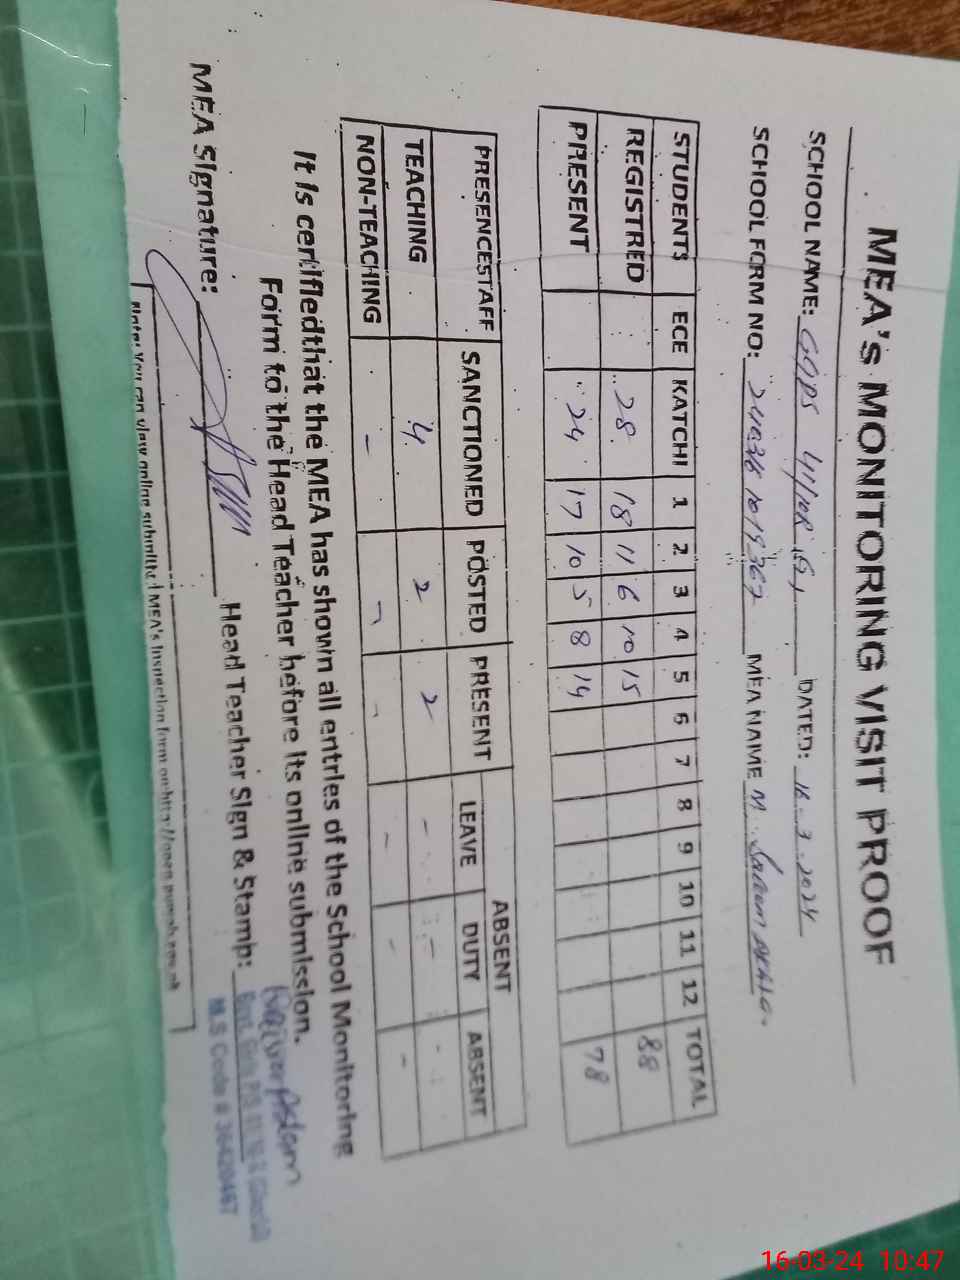 MEA's MONITORING VISIT PROOF
SCHOOL NAME: GGPS 41/10R DATED: 16.3.2024
SCHOOL FORM NO: MEA NAME M. Saleem Akhtar
STUDENTS ECE KATCHI 1 2 3 4 5 6 7 8 9 10 11 12 TOTAL
REGISTRED 28 18 11 6 10 15 88
PRESENT 24 17 10 5 8 14 78
PRESENCESTAFF SANCTIONED POSTED PRESENT ABSENT
LEAVE DUTY ABSENT
TEACHING 4 2 2 - - -
NON-TEACHING - - - - - -
It is certifiedthat the MEA has shown all entries of the School Monitoring
Form to the Head Teacher before its online submission.
MEA Signature: Head Teacher Sign & Stamp:
M.S Code # 36420467
Note: You can view online submitted MEA's Inspection form on:http://open.punjab.gov.pk
16-03-24 10:47